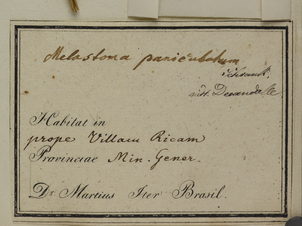 Melastoma paniculatum
Schrank.
Decandolle
Habitat in
prope Villam Ricam
Provinciae Min. Gener.
Dr. Martius Iter Brasil.